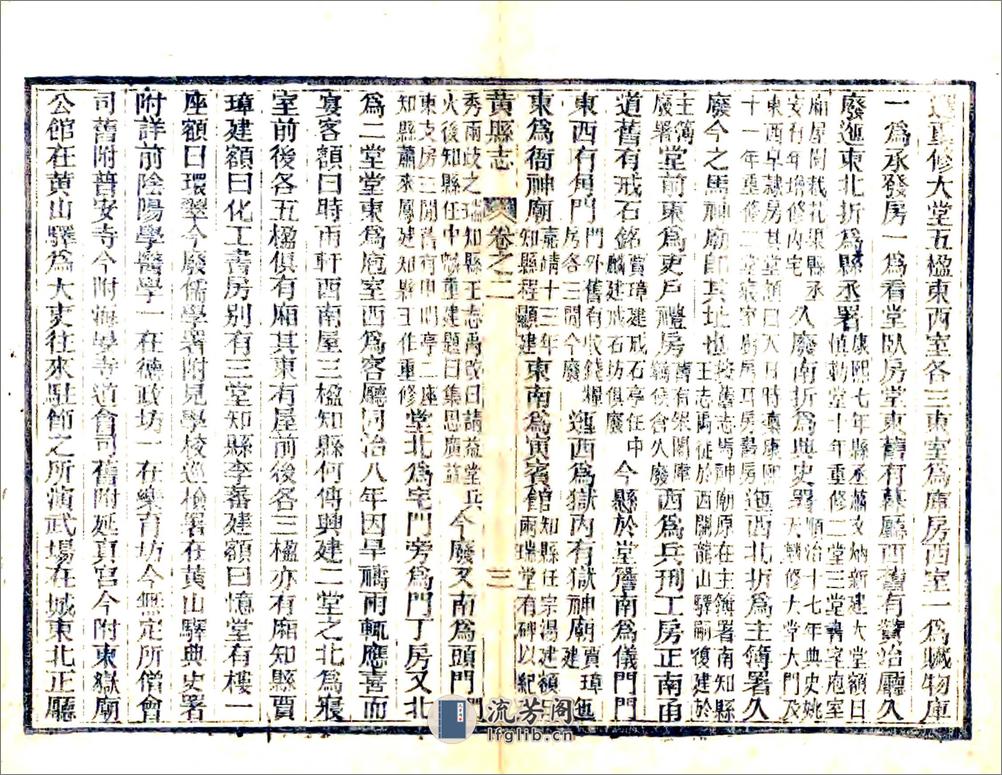 重修大堂五楹東西室各三東室爲庫房西室一爲贓物庫
一爲承發房一爲看堂臥房堂東舊有幕廳西舊有贊治廳久
廢迤東北折爲縣丞署康熙七年縣丞蕭啟炳新建大堂額曰
廟居閒栽花果縣丞
安有年增修內宅乾隆十年重修二堂三堂書室庖室久廢南折爲典史署順治十七年典史姚
大轉修大堂大門及
東西皁隸房其堂額曰入日時藥康熙
十一年重修二堂迤西北折爲主簿署久
廢今之馬神廟卽其址也按舊志馬神廟原在主簿署南知縣
王志禹徙於西關龍山驛嗣復建於
主簿
廢署堂前東爲吏戶禮房舊有架閣庫
久廢西爲兵刑工房正南甬
道舊有戒石銘賈璋建戒石亭任中
麟建戒石坊俱廢今懸於堂簷南爲儀門門
東西有角門門外舊有收錢櫃
房各三間今廢迤西爲獄內有獄神廟賈璋
建迤
東爲衙神廟嘉靖十三年
知縣程顯建東南爲寅賓館知縣任宗湯建額
雨瑞堂有碑以紀
黃縣志 卷之二 三
秀兩歧之瑞知縣王志禹改曰請益堂兵
火後知縣任中麟重建題曰集思廣益今廢又南爲頭門門
東支房三間舊有申明亭二座
知縣蕭來鳳建知縣王作重修堂北爲宅門旁爲門丁房又北
爲二堂堂東爲庖室西爲客廳同治八年因旱禱雨輒應喜而
宴客額曰時雨軒西南屋三楹知縣何傳興建二堂之北爲寢
室前後各五楹俱有廂其東有屋前後各三楹亦有廂知縣賈
璋建額曰化工書房別有三堂知縣李蕃建額曰憶堂有樓一
座額曰環翠今廢儒學署附見學校巡檢署在黃山驛典史署
附詳前陰陽學醫學一在德政坊一在樂育坊今無定所僧會
司舊附普安寺今附海旱寺道會司舊附延眞宮今附東嶽廟
公館在黃山驛爲大吏往來駐節之所演武場在城東北正廳
流芳阁
lfglib.cn